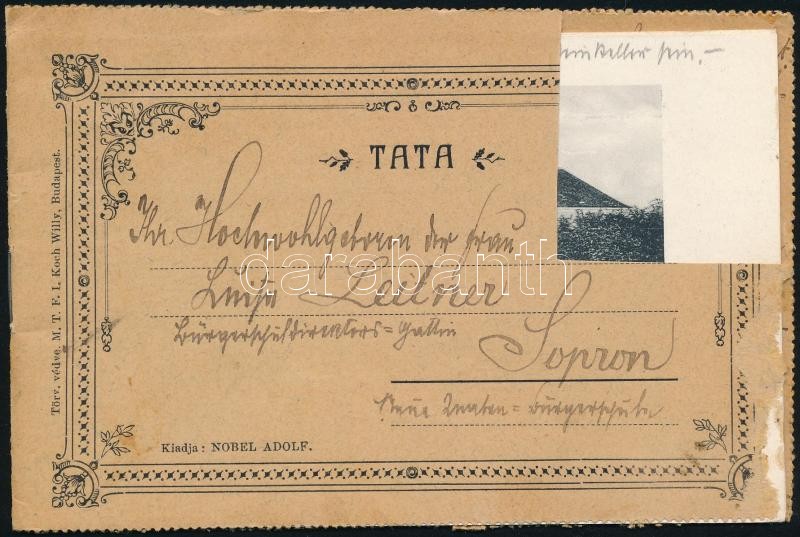 keller sein.–
TATA
Ihr Hochwohlgeboren der Frau
Luise Leitner
Bürgerschuldirektors=Gattin
Sopron
Neue Knaben=Bürgerschule
Kiadja: NOBEL ADOLF.
Törv. védve. M. T. F. I. Koch Willy, Budapest.
darabanth